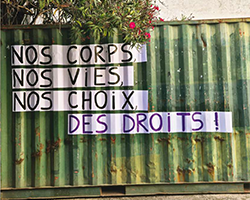 NOS CORPS,
NOS ViES,
NOS CHOiX,
DES DROiTS !